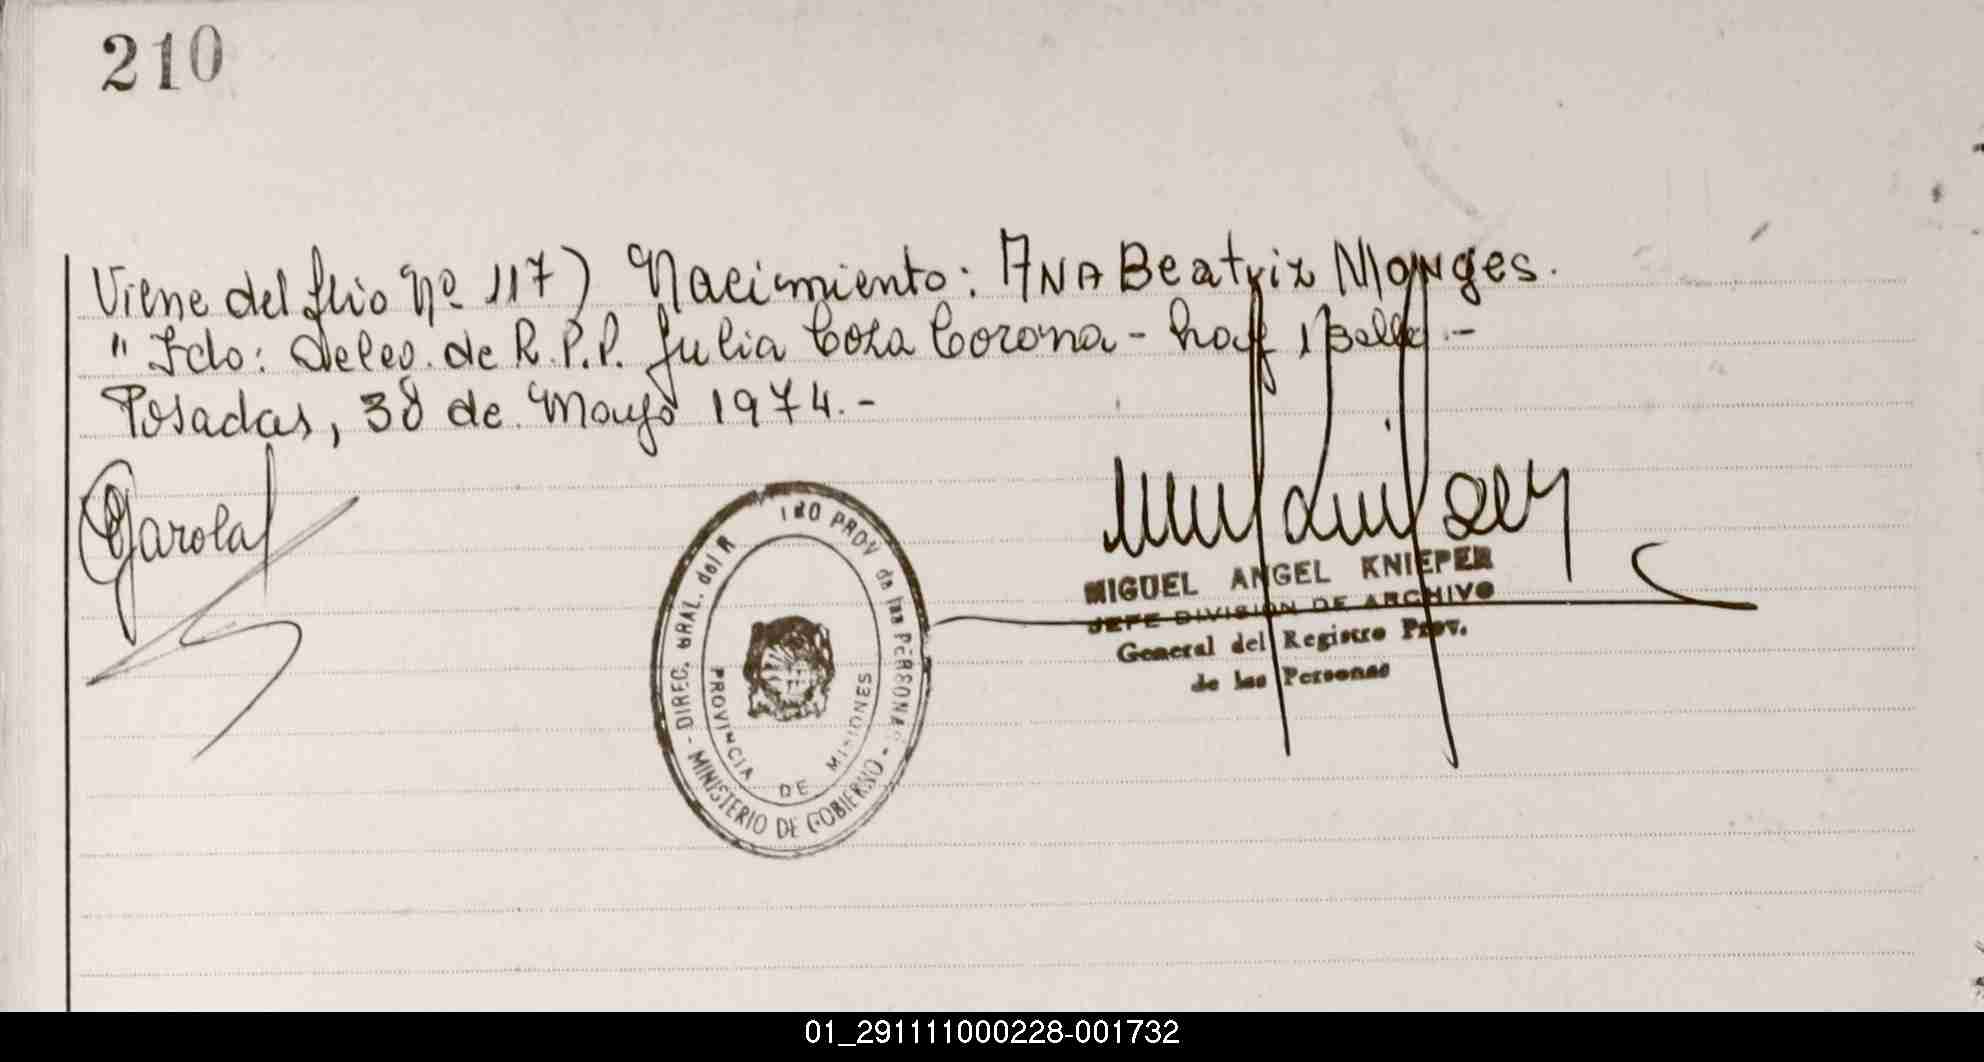 210
Viene del flio Nº 117) Nacimiento: ANA Beatriz Monges.
" Fdo: Deleg. de R.P.P. Julia Coza Corona - hay 1 Sello.-
Posadas, 30 de Mayo 1974.-
Garola
DIREC. GRAL. del R TRO PROV de las PERSONAS
- MINISTERIO DE GOBIERNO -
PROVINCIA DE MISIONES
MIGUEL ANGEL KNIEPER
JEFE DIVISION DE ARCHIVO
General del Registro Prov.
de las Personas
01_291111000228-001732